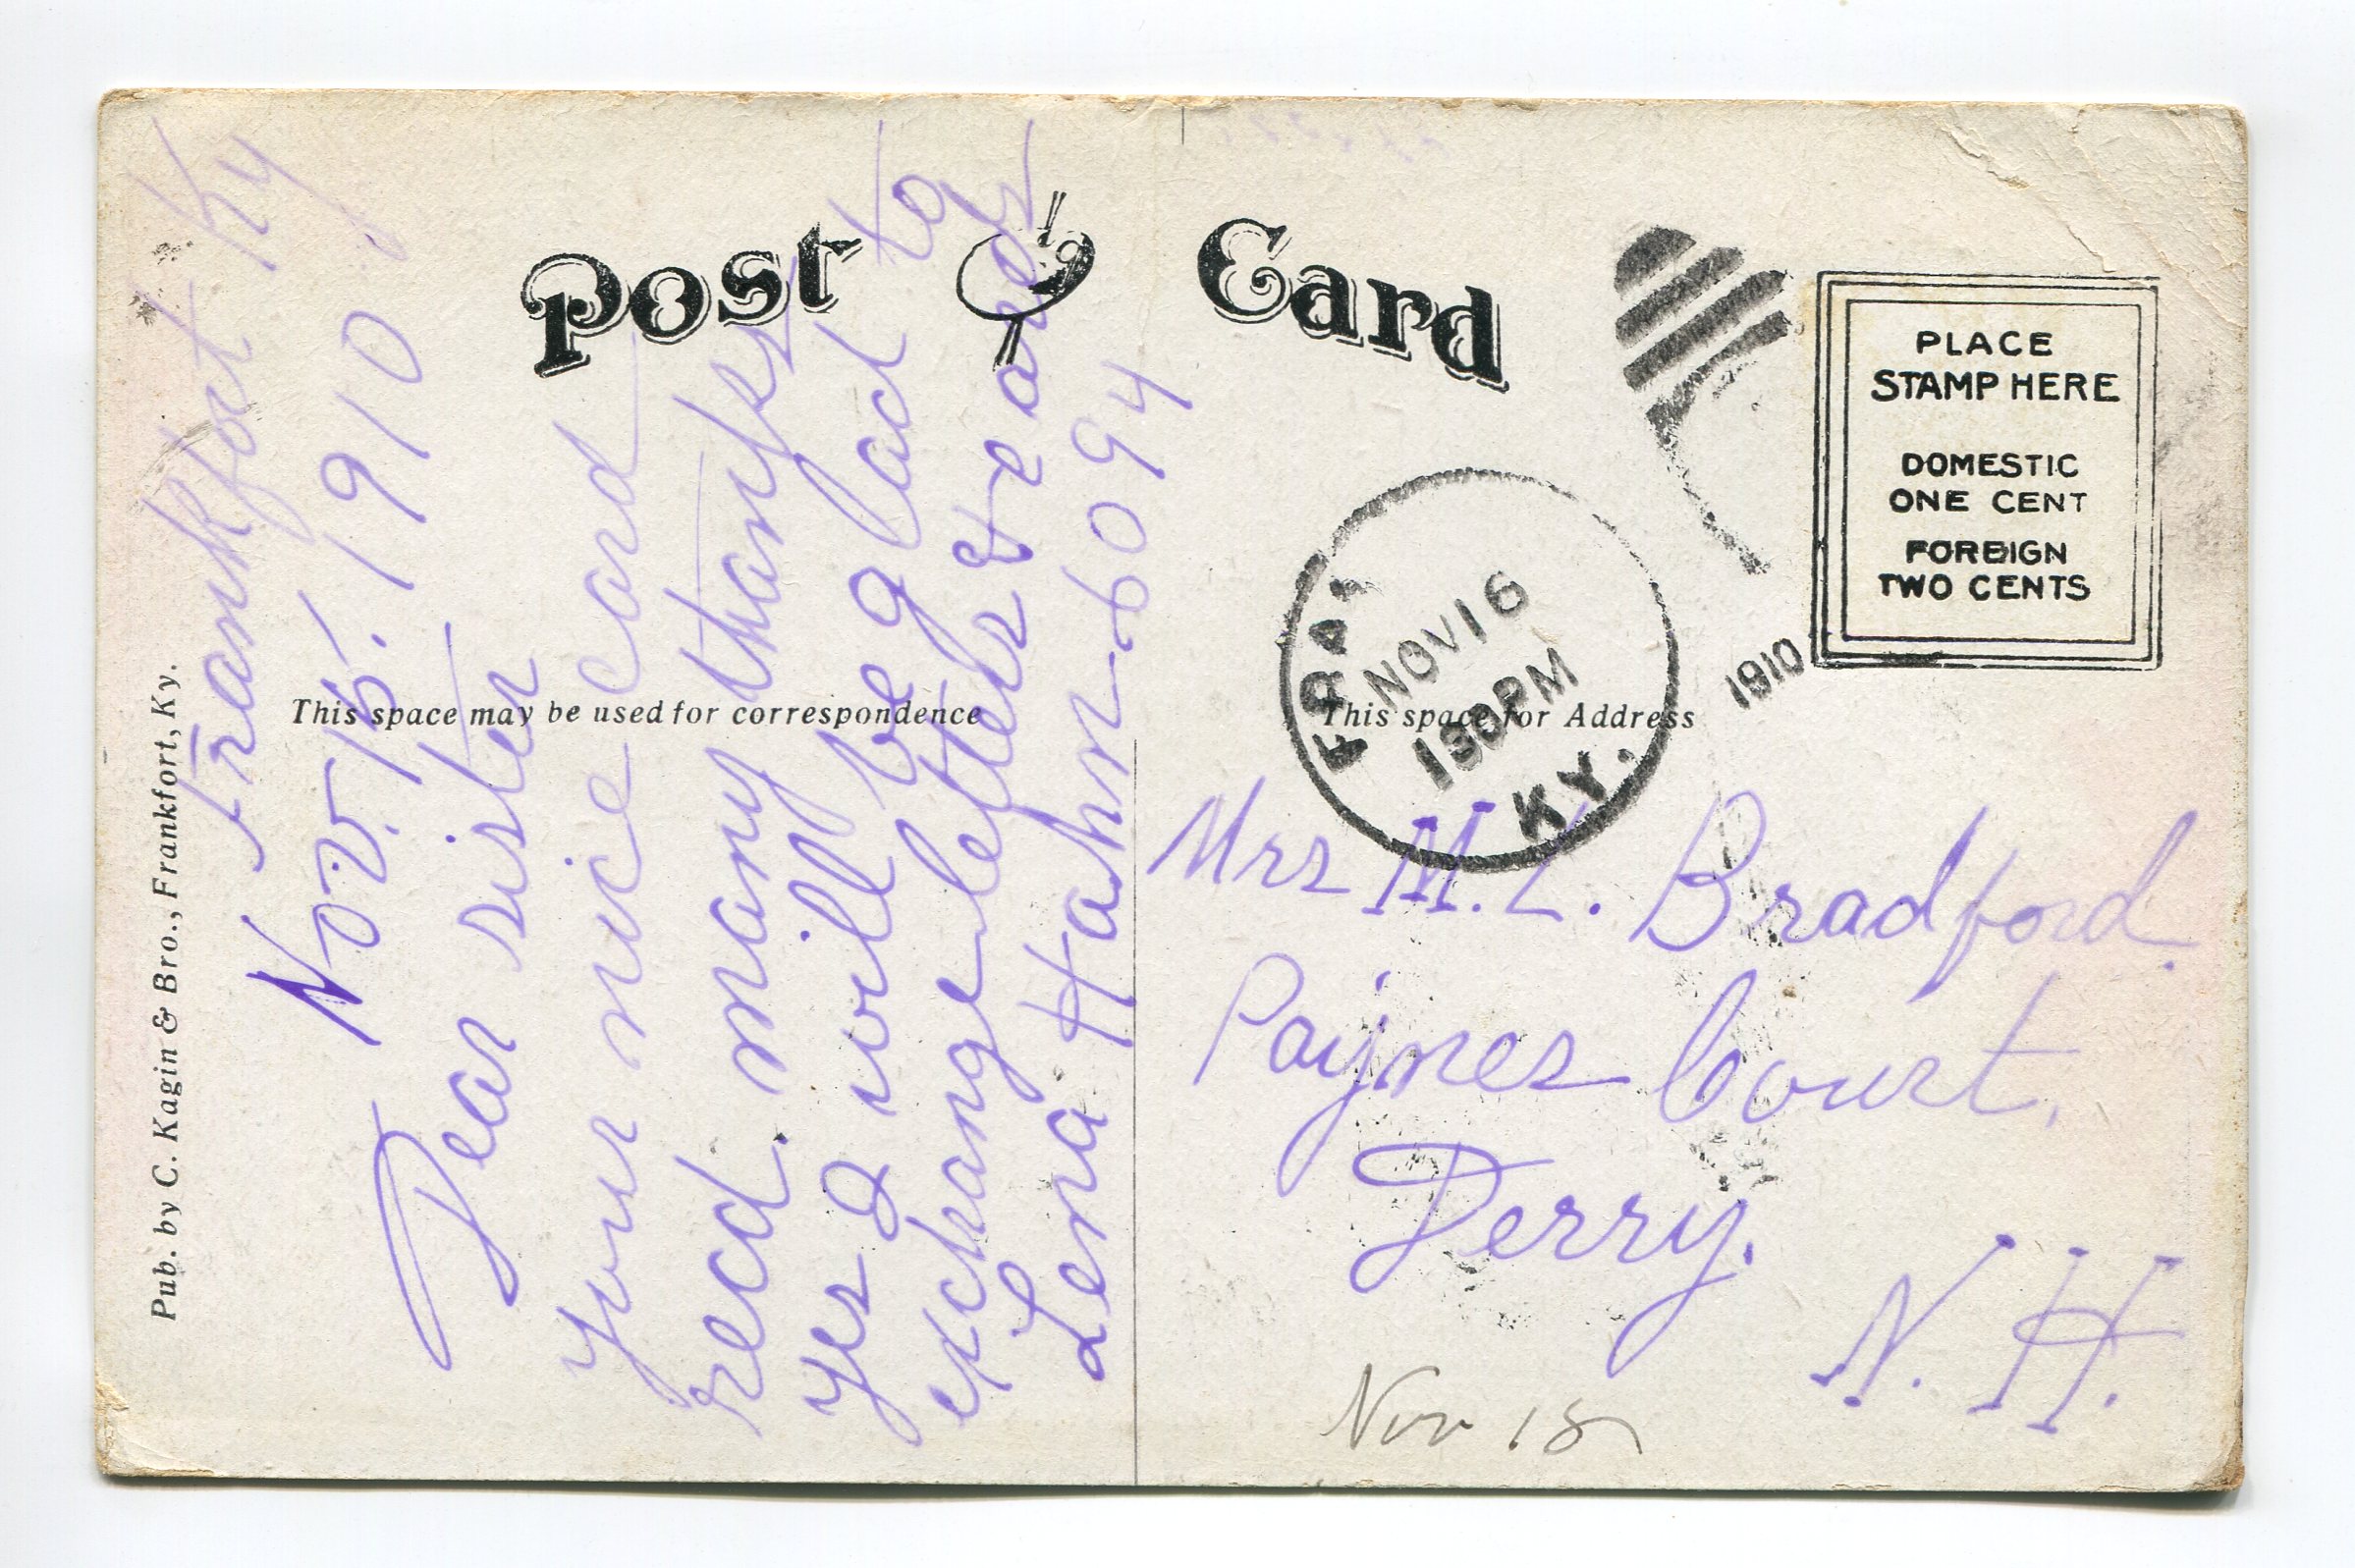 Post Card
PLACE
STAMP HERE
DOMESTIC
ONE CENT
FOREIGN
TWO CENTS
NOV 16
130 PM
1910
KY.
This space may be used for correspondence
This space for Address
Pub. by C. Kagin & Bro., Frankfort, Ky.
Frankfort Ky
Nov. 15. 1910
Dear sister
Your nice card
recd. many thanks
yes I will be glad to
exchange letters & cards
Lena Hahn-6094
Mrs M. L. Bradford.
Paynes Court.
Derry.
N. H.
Nov 18